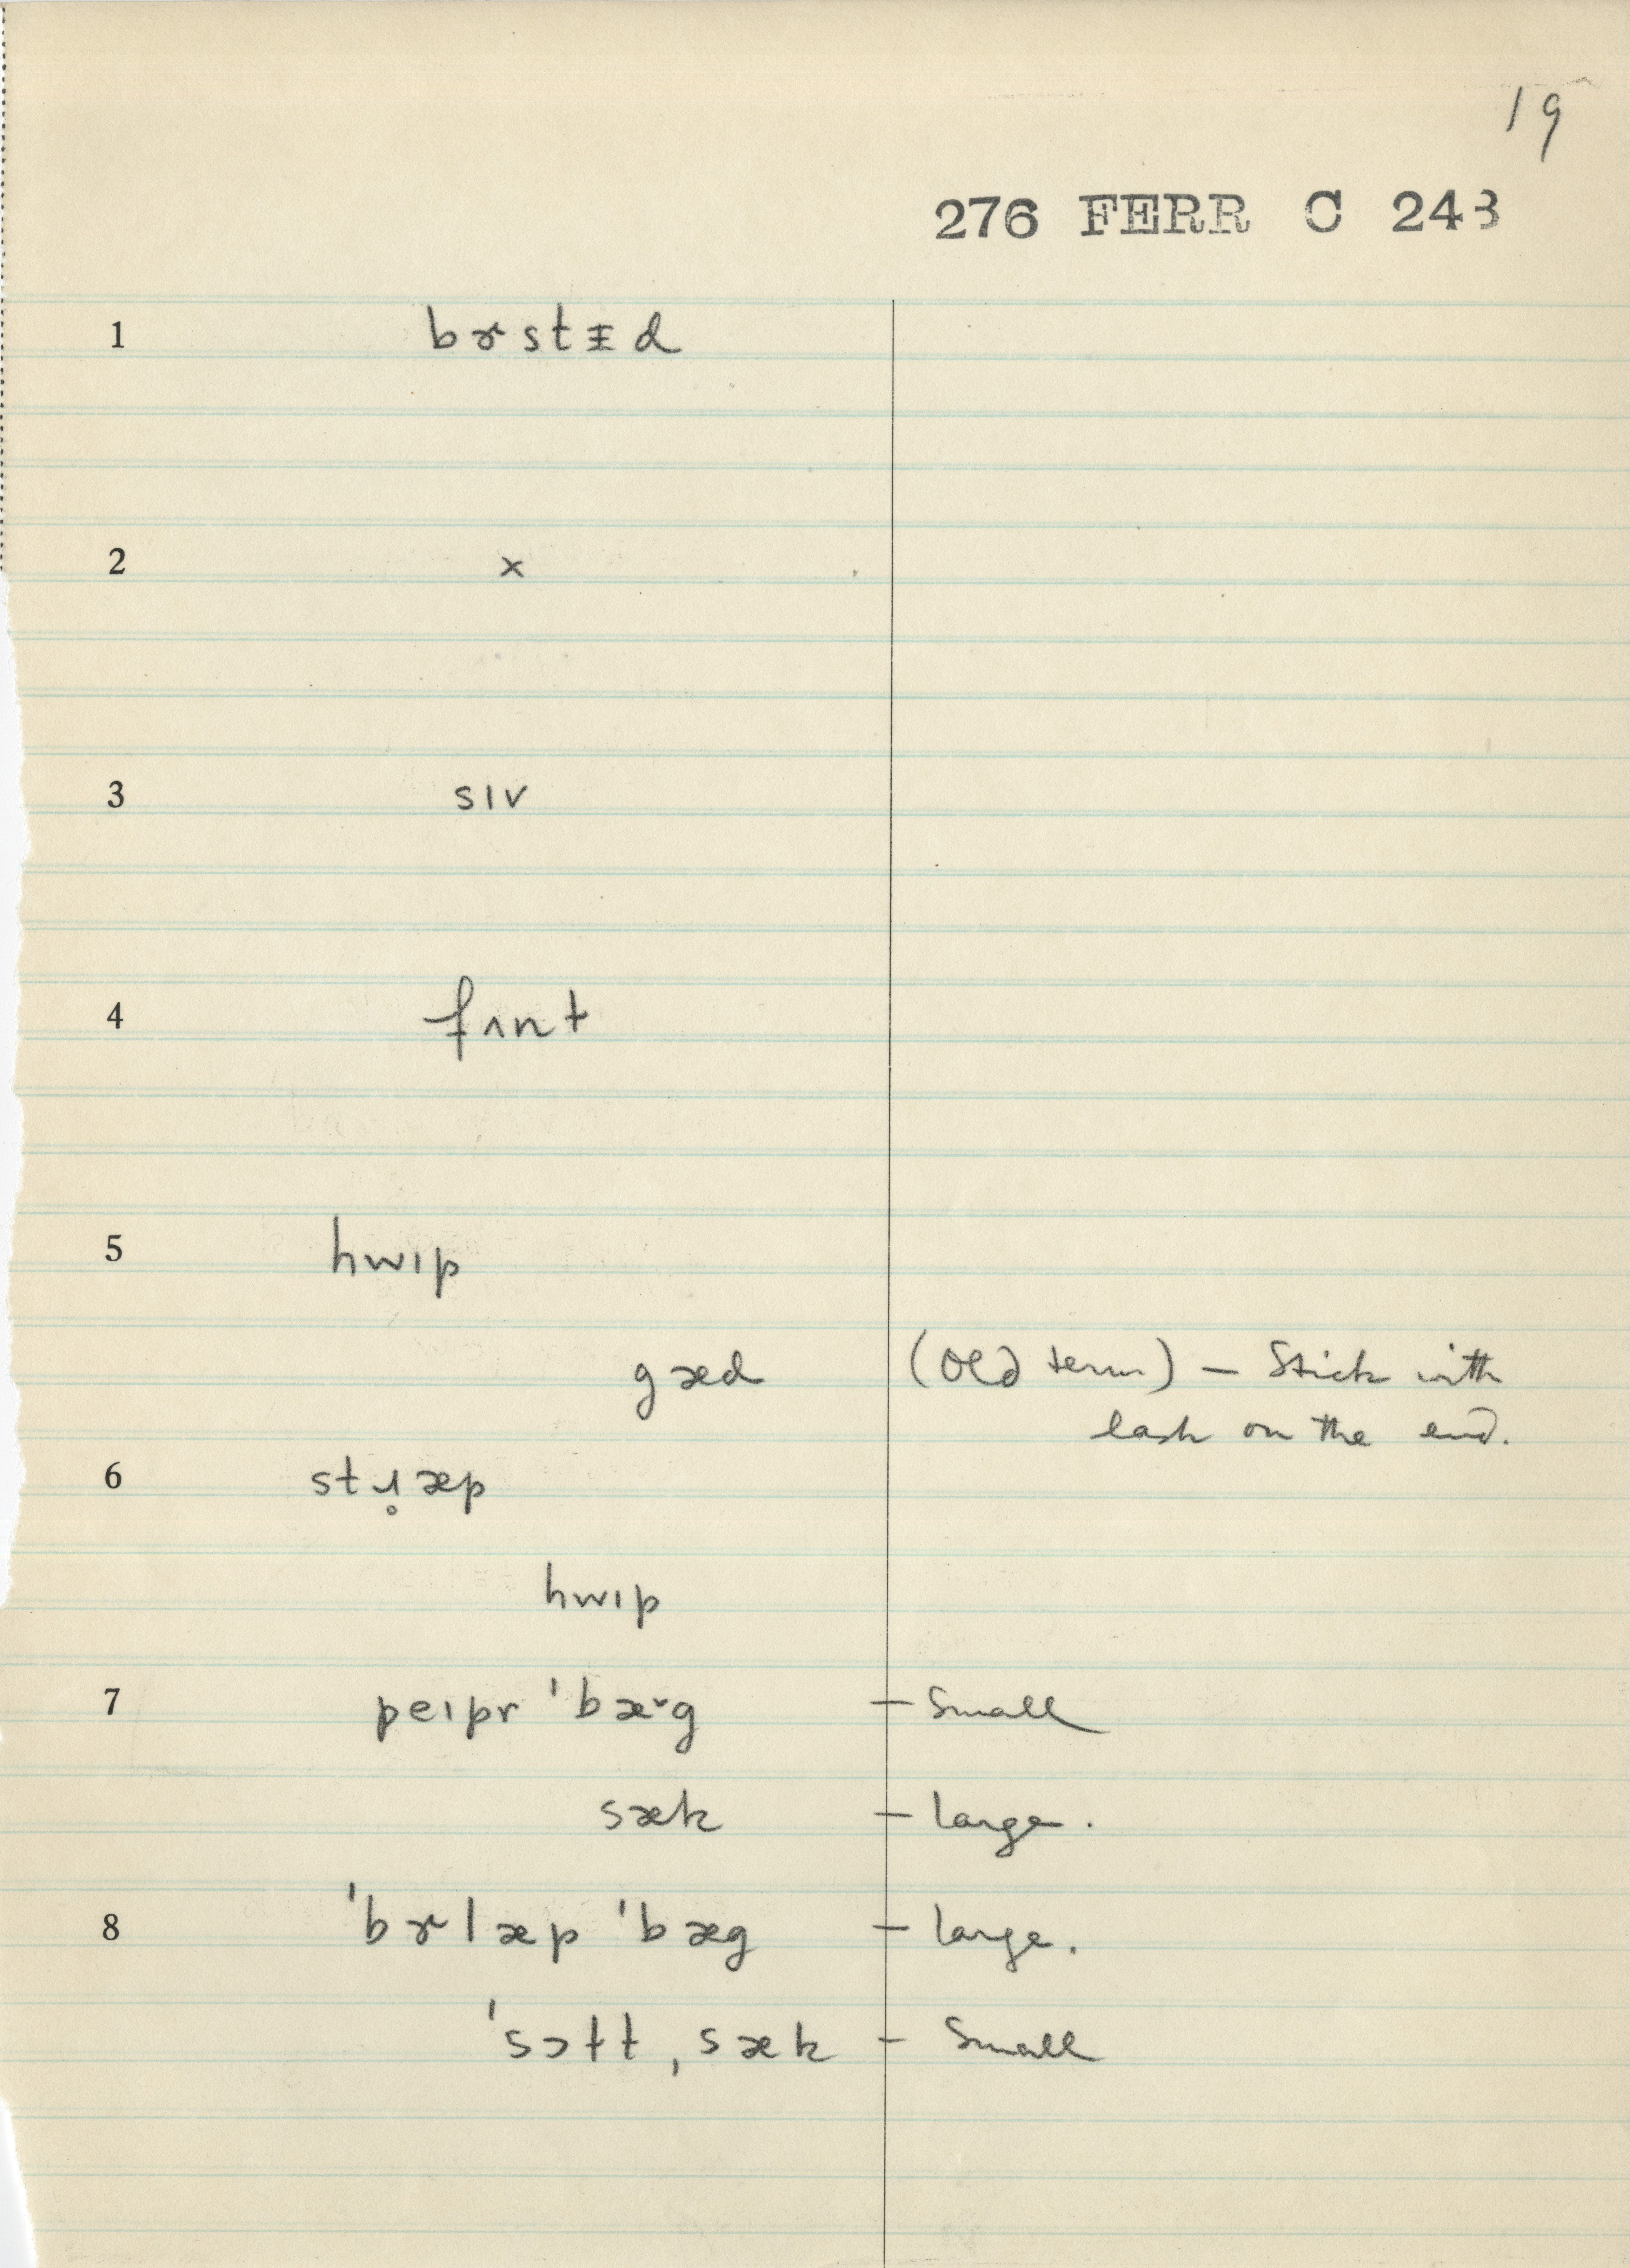 19
276 FERR C 243
1 bɚstᵻd
2 x
3 sɪv
4 fʌnt
5 hwɪp
gæd (Old term) — Stick with
lash on the end.
6 stɹ̥æp
hwɪp
7 peɪpr ˈbæ˅g — Small
sæk — large.
8 ˈbɚlæp ˈbæg — large.
ˈsɔtt ˌsæk — Small